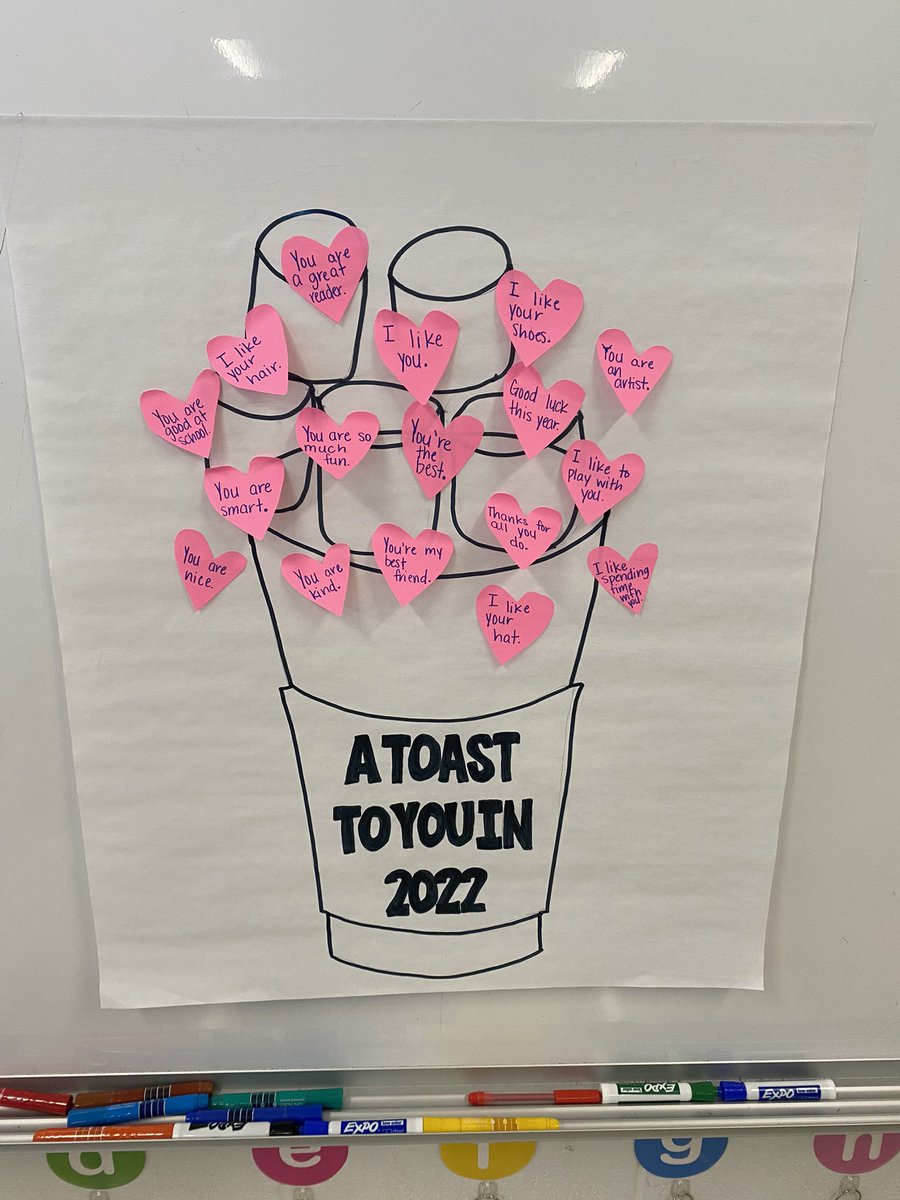 You are
a great
reader.
I like
your
hair.
I like
you.
I like
your
shoes.
You are
an
artist.
You are
good at
school.
You are so
much
fun.
You're
the
best.
Good luck
this year.
I like to
play with
you.
You are
smart.
Thanks for
all you
do.
You are
nice.
You are
kind.
You're my
best
friend.
I like
spending
time
with
you.
I like
your
hat.
A TOAST
TO YOU IN
2022
EXPO
EXPO
EXPO
d
e
f
g
h